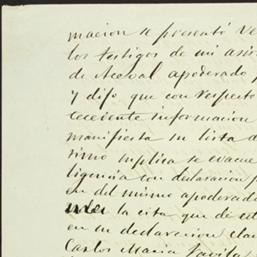 macion se presentó Ve
los testigos de mi asis
de Aceval apoderado p
Y dijo que con respecto
manifiesta su lista d
rimo suplica se evacue
ligencia con declaracion p
en del mismo apoderado
la cita que de est
en su declaracion cla
Carlos Maria